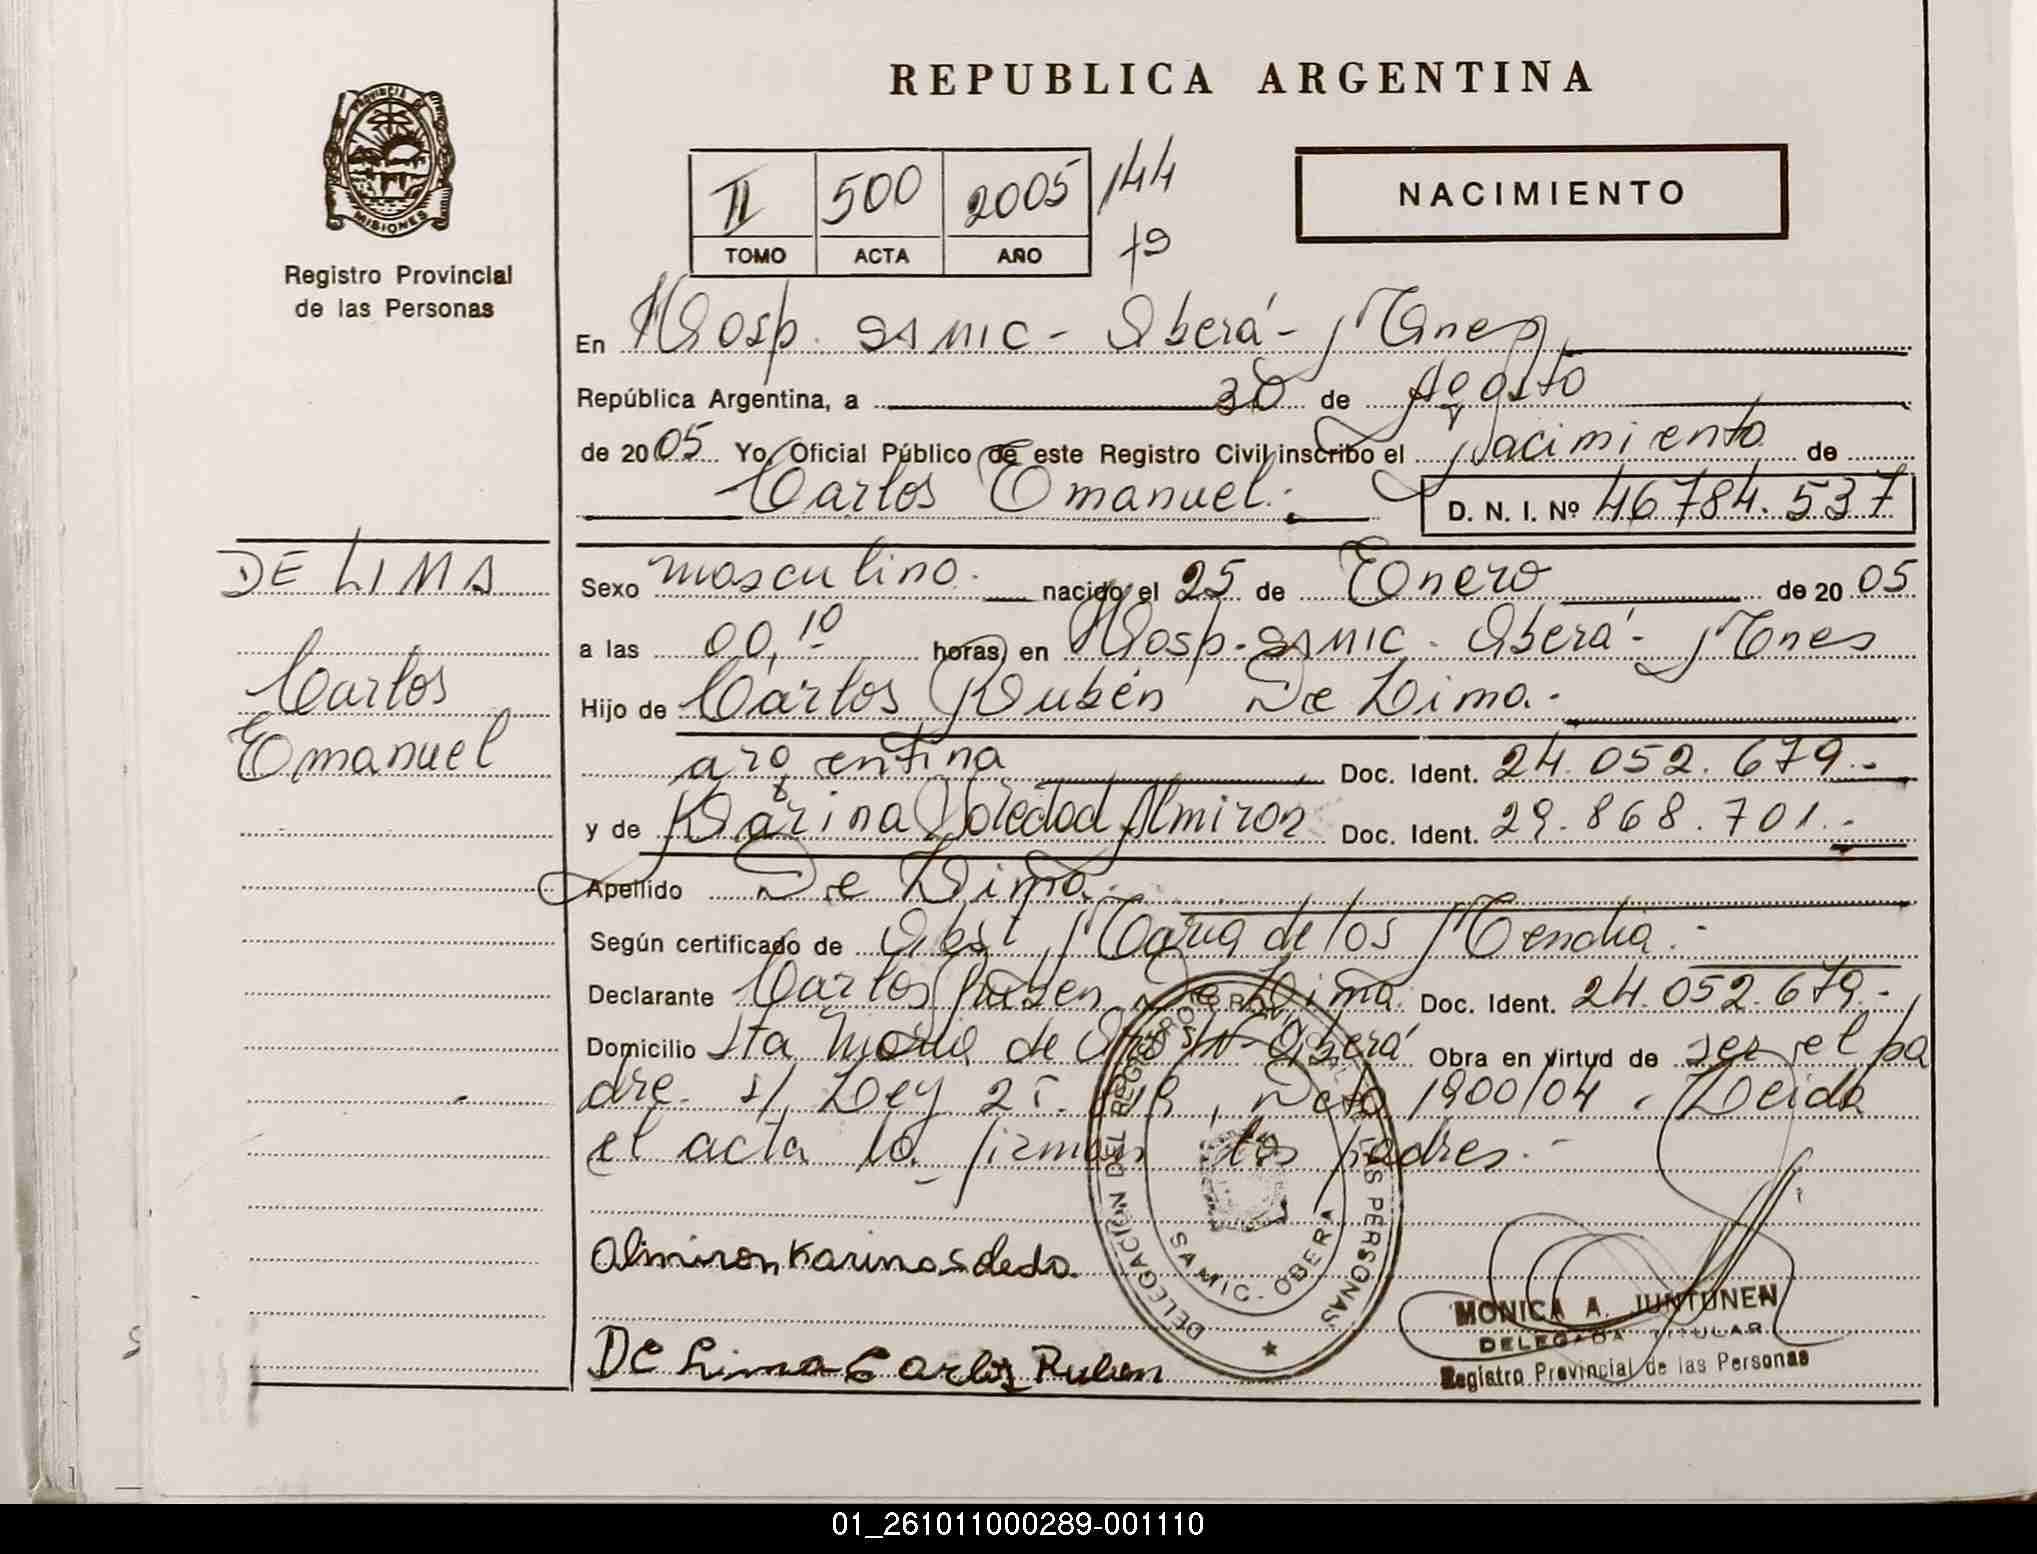 REPUBLICA ARGENTINA
PROVINCIA DE
MISIONES
Registro Provincial
de las Personas
II 500 2005 144
TOMO ACTA AÑO 79
NACIMIENTO
En Hosp. SAMIC - Oberá - Mnes
República Argentina, a 30 de Agosto
de 2005 Yo, Oficial Público de este Registro Civil inscribo el Nacimiento de
Carlos Emanuel.- D. N. I. Nº 46784.537
DE LIMA
Carlos
Emanuel
Sexo masculino. nacido el 25 de Enero de 2005
a las 00,10 horas, en Hosp. SAMIC - Oberá - Mnes
Hijo de Carlos Rubén De Lima.-
argentina Doc. Ident. 24.052.679.-
y de Karina Soledad Almirón Doc. Ident. 29.868.701.-
Apellido De Lima.-
Según certificado de Obst. María de los Mendia.-
Declarante Carlos Ruben De Lima. Doc. Ident. 24.052.679.-
Domicilio Sta María de Oro S/Nº Oberá Obra en virtud de ser el pa
dre. s/ Ley 25.819, Dcto 1900/04. Leida
el acta la firman los padres.-
Almiron Karina Soleda
De Lima Carlos Ruben
DELEGACIÓN DEL REGISTRO PROVINCIAL DE LAS PERSONAS
SAMIC - OBERA
MONICA A. JUNTUNEN
DELEGADA TITULAR
Registro Provincial de las Personas
01_261011000289-001110